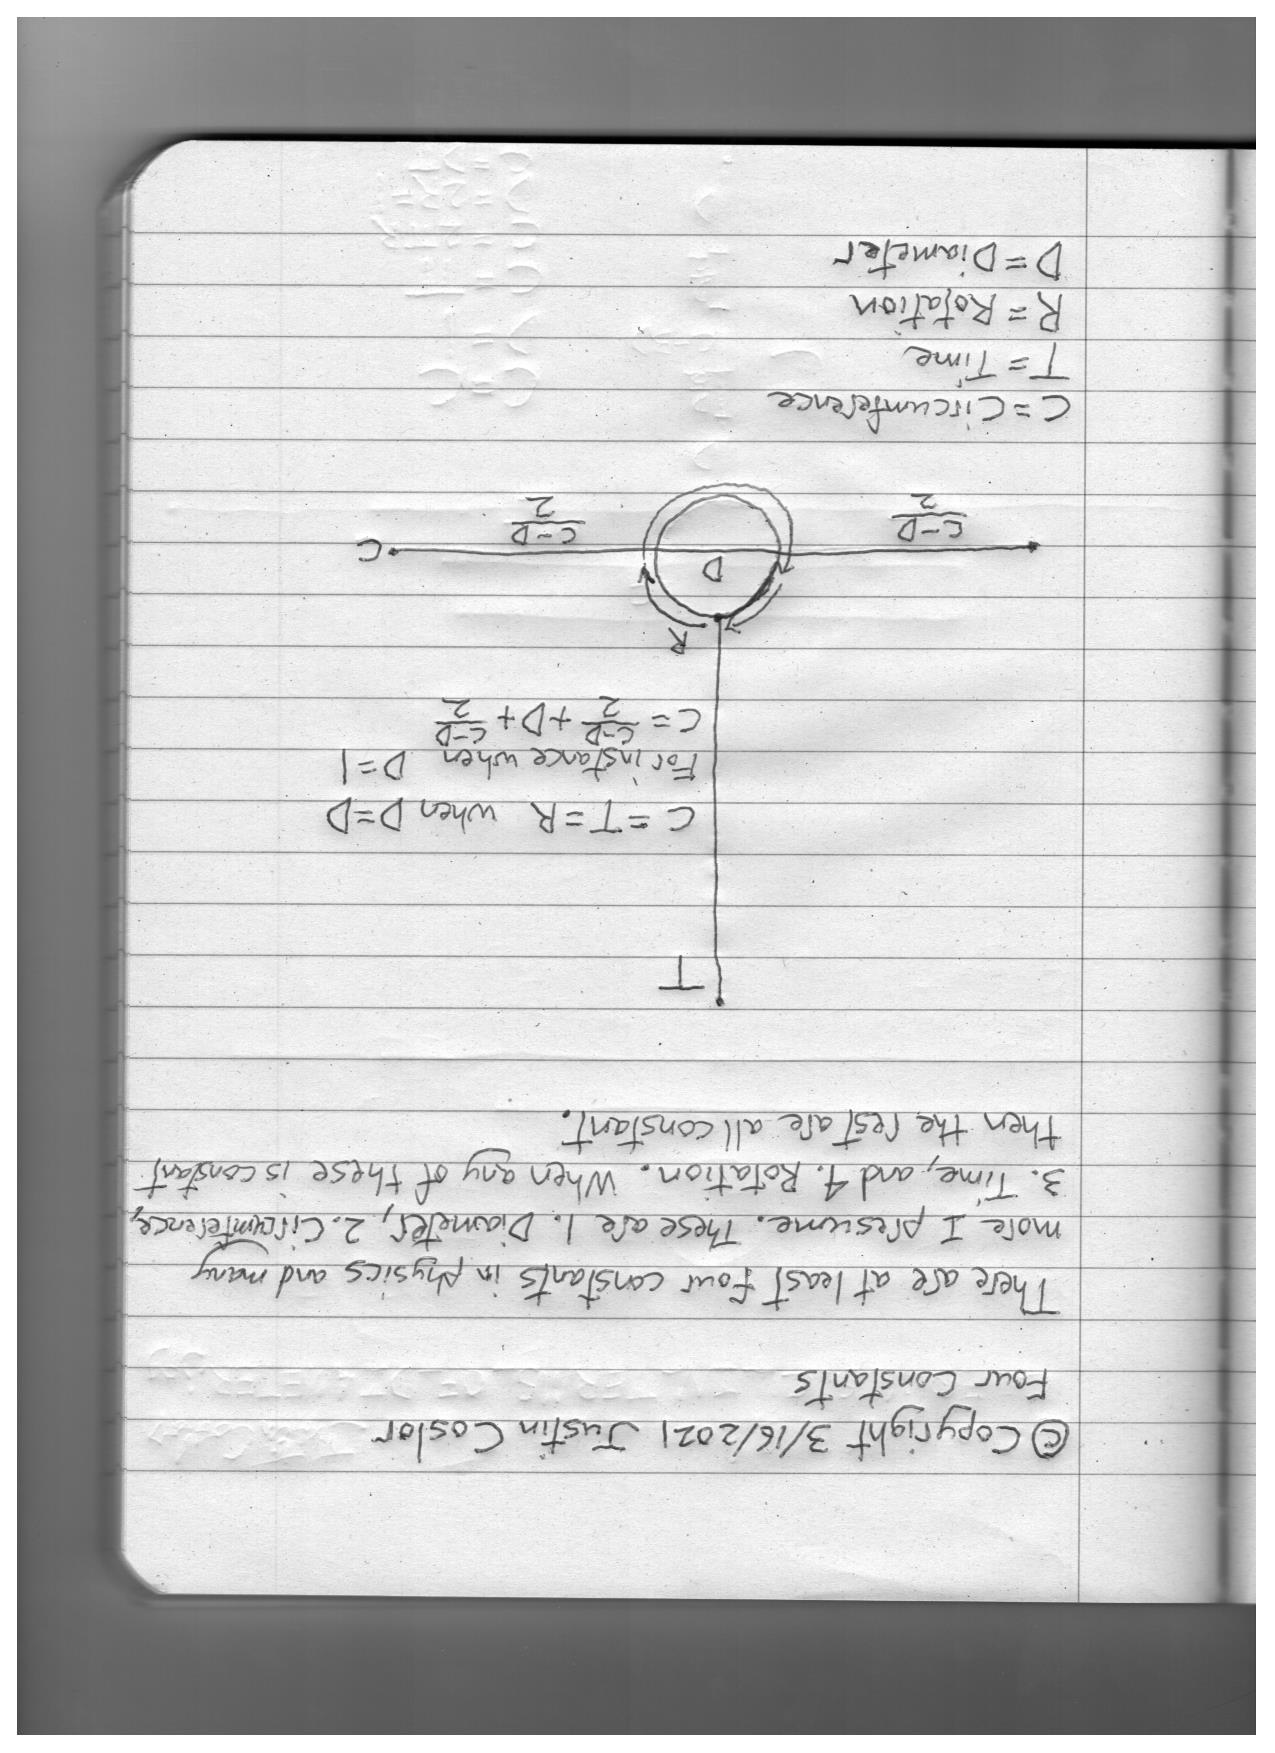 © Copyright 3/16/2021 Justin Coslor
Four Constants
There are at least four constants in physics and many
more I presume. These are 1. Diameter, 2. Circumference,
3. Time, and 4. Rotation. When any of these is constant
then the rest are all constant.
T
C=T=R when D=D
For instance when D=1
C = C-D/2 + D + C-D/2
R
D
C-D/2
C-D/2
C
C=Circumference
T=Time
R=Rotation
D=Diameter